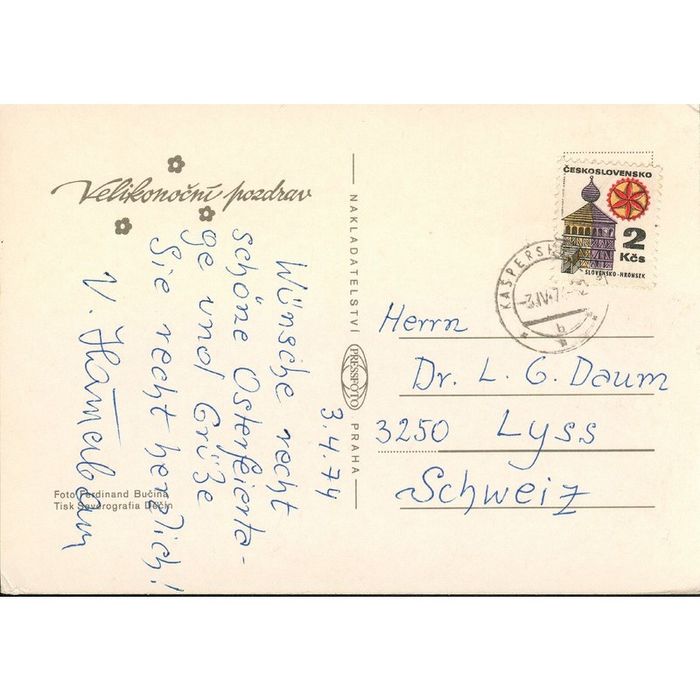 Velikonoční pozdrav
3.4.74
Wünsche recht
schöne Osterfeierta-
ge und Grüße
Sie recht herzlich!
V.
Foto Ferdinand Bučina
Tisk Severografia Děčín
NAKLADATELSTVÍ PRESSFOTO PRAHA
ČESKOSLOVENSKO
2
Kčs
SLOVENSKO-HRONSEK
KAŠPERSKÉ
-3.IV.74
b
Herrn
Dr. L. G. Daum
3250 Lyss
Schweiz